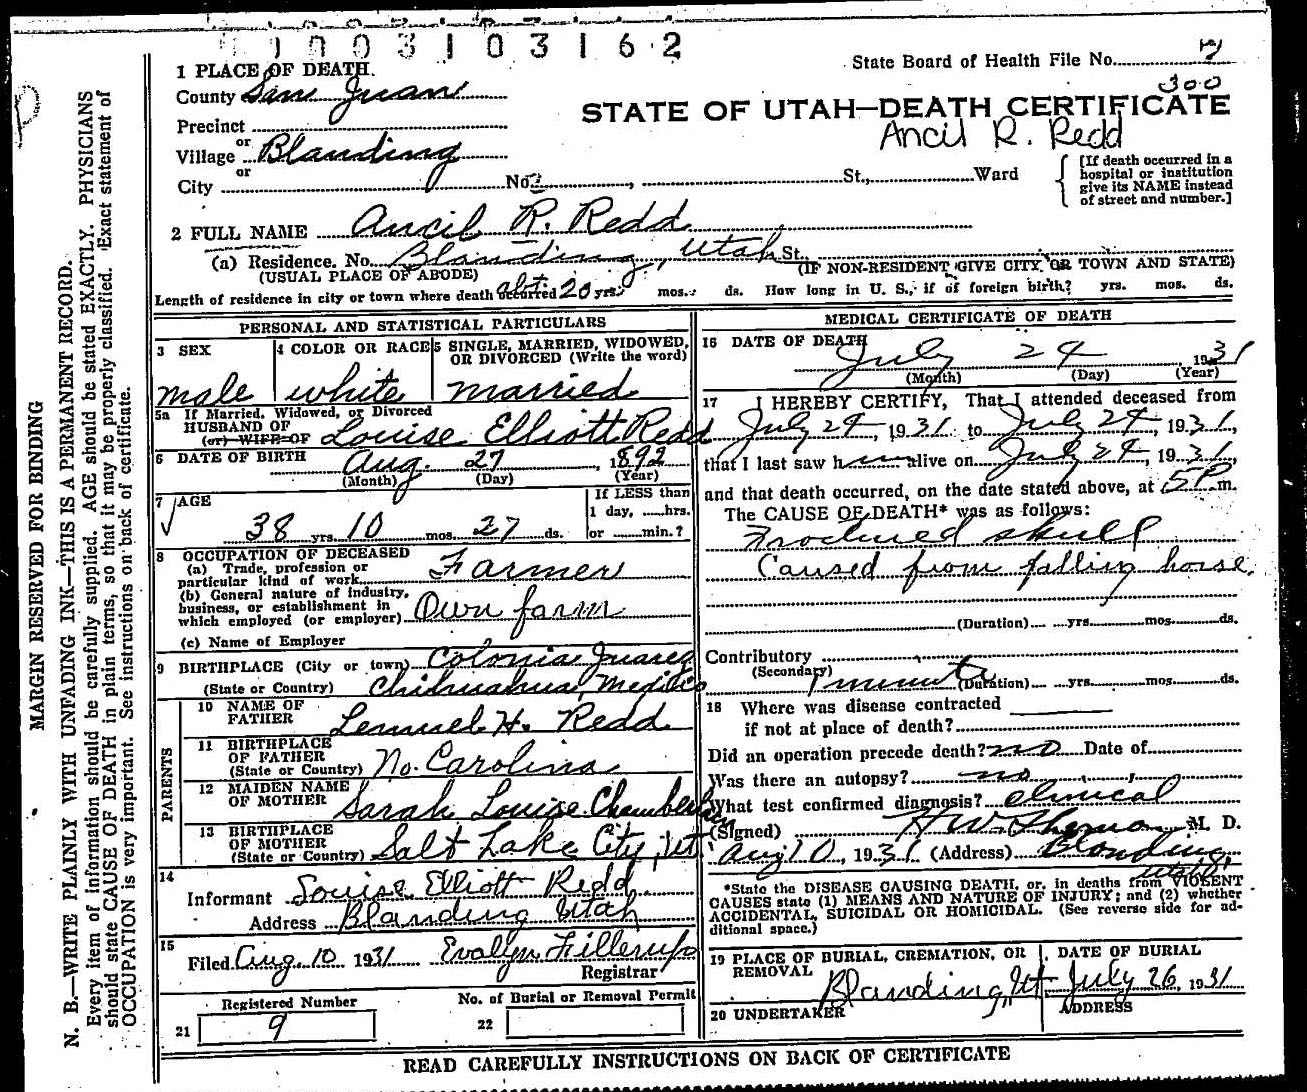 1003103162
State Board of Health File No. 7
300
1 PLACE OF DEATH.
County San Juan
STATE OF UTAH—DEATH CERTIFICATE
Ancil R. Redd
Precinct
or
Village Blanding
or
City No. St., Ward
[If death occurred in a
hospital or institution
give its NAME instead
of street and number.]
2 FULL NAME Ancil R. Redd
(a) Residence. No. Blanding, Utah St.
(USUAL PLACE OF ABODE) (IF NON-RESIDENT GIVE CITY OR TOWN AND STATE)
Length of residence in city or town where death occurred abt 20 yrs. mos. ds. How long in U. S., if of foreign birth? yrs. mos. ds.
PERSONAL AND STATISTICAL PARTICULARS
3 SEX
male
4 COLOR OR RACE
white
5 SINGLE, MARRIED, WIDOWED,
OR DIVORCED (Write the word)
married
5a If Married, Widowed, or Divorced
HUSBAND OF
(or) WIFE OF Louise Elliott Redd
6 DATE OF BIRTH Aug. 27, 1892
(Month) (Day) (Year)
7 AGE
38 yrs. 10 mos. 27 ds.
If LESS than
1 day, hrs.
or min.?
8 OCCUPATION OF DECEASED
(a) Trade, profession or
particular kind of work Farmer
(b) General nature of industry,
business, or establishment in
which employed (or employer) Own farm
(c) Name of Employer
9 BIRTHPLACE (City or town) Colonia Juarez
(State or Country) Chihuahua, Mexico
PARENTS
10 NAME OF
FATHER Lemuel H. Redd
11 BIRTHPLACE
OF FATHER
(State or Country) No. Carolina
12 MAIDEN NAME
OF MOTHER Sarah Louise Chamberlain
13 BIRTHPLACE
OF MOTHER
(State or Country) Salt Lake City, Ut.
14
Informant Louise Elliott Redd
Address Blanding Utah
15
Filed Aug. 10 1931 Evalyn Fillerup
Registrar
Registered Number
21 9
No. of Burial or Removal Permit
22
MEDICAL CERTIFICATE OF DEATH
16 DATE OF DEATH
July 24, 1931
(Month) (Day) (Year)
17 I HEREBY CERTIFY, That I attended deceased from
July 24, 1931 to July 24, 1931,
that I last saw him alive on July 24, 1931,
and that death occurred, on the date stated above, at 5 P m.
The CAUSE OF DEATH* was as follows:
Fractured skull
Caused from falling horse.
(Duration) yrs. mos. ds.
Contributory
(Secondary)
(Duration) yrs. mos. ds.
18 Where was disease contracted
if not at place of death?
Did an operation precede death? no Date of
Was there an autopsy? no
What test confirmed diagnosis? clinical
(Signed) M. D.
Aug 10, 1931 (Address) Blanding
Utah
*State the DISEASE CAUSING DEATH, or, in deaths from VIOLENT
CAUSES state (1) MEANS AND NATURE OF INJURY; and (2) whether
ACCIDENTAL, SUICIDAL OR HOMICIDAL. (See reverse side for ad-
ditional space.)
19 PLACE OF BURIAL, CREMATION, OR
REMOVAL
Blanding, Ut
DATE OF BURIAL
July 26, 1931
20 UNDERTAKER
ADDRESS
READ CAREFULLY INSTRUCTIONS ON BACK OF CERTIFICATE
MARGIN RESERVED FOR BINDING
N. B.—WRITE PLAINLY WITH UNFADING INK—THIS IS A PERMANENT RECORD.
Every item of information should be carefully supplied. AGE should be stated EXACTLY. PHYSICIANS
should state CAUSE OF DEATH in plain terms, so that it may be properly classified. Exact statement of
OCCUPATION is very important. See instructions on back of certificate.